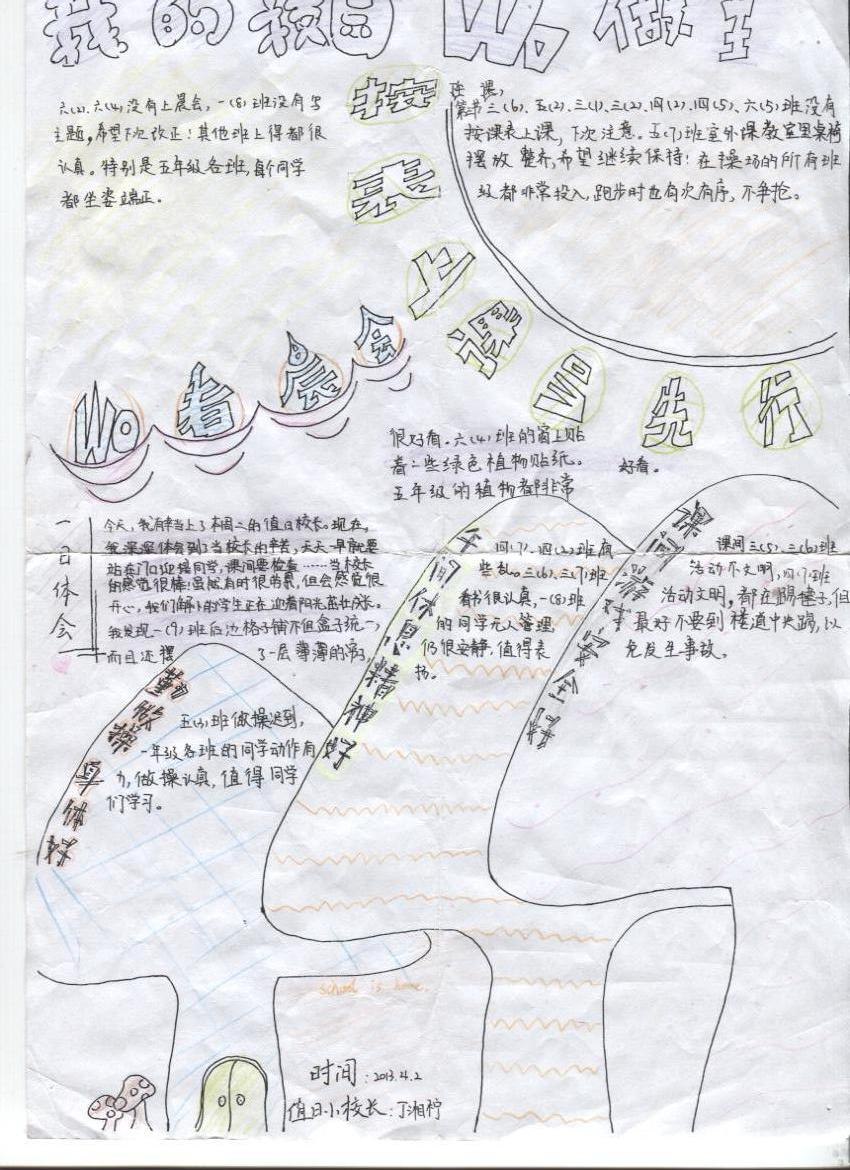 我的校园Wo做主
六(2)、六(4)没有上晨会,一(8)班没有写
主题,希望下次改正!其他班上得都很
认真。特别是五年级各班,每个同学
都坐姿端正。
按表上课Wo先行
第一节三(6)、五(2)、三(1)、三(2)、四(2)、四(5)、六(5)班没有
按课表上课,下次注意。五(7)班室外课教室里桌椅
摆放整齐,希望继续保持!在操场的所有班
级都非常投入,跑步时也有次有序,不争抢。
Wo看晨会
很好看。六(4)班的窗上贴
着一些绿色植物贴纸。
五年级的植物都非常
好看。
一日体会
今天,我有幸当上了本周二的值日校长。现在,
我深深体会到了当校长的辛苦,天天一早就要
站在门口迎接同学,课间要检查……当校长
的感觉很棒!虽然有时很劳累,但会感觉很
开心,我们的学生正在迎着阳光茁壮成长。
我发现一(9)班后边格子铺不但盒子统一,
而且还摆 了一层薄薄的
勤做操身体好
五(3)班做操迟到,
一年级各班的同学动作有
力,做操认真,值得同学
们学习。
午间休息精神好
四(7)、四(2)班有
些乱。三(6)、三(7)班
看书很认真,一(8)班
的同学无人管理
仍很安静,值得表
扬。
课间游戏安全好
课间三(5)、三(6)班
活动不文明,四(7)班
活动文明,都在踢毽子,但
最好不要到楼道中央踢,以
免发生事故。
school is home.
时间:2013.4.2
值日小校长:丁湘柠